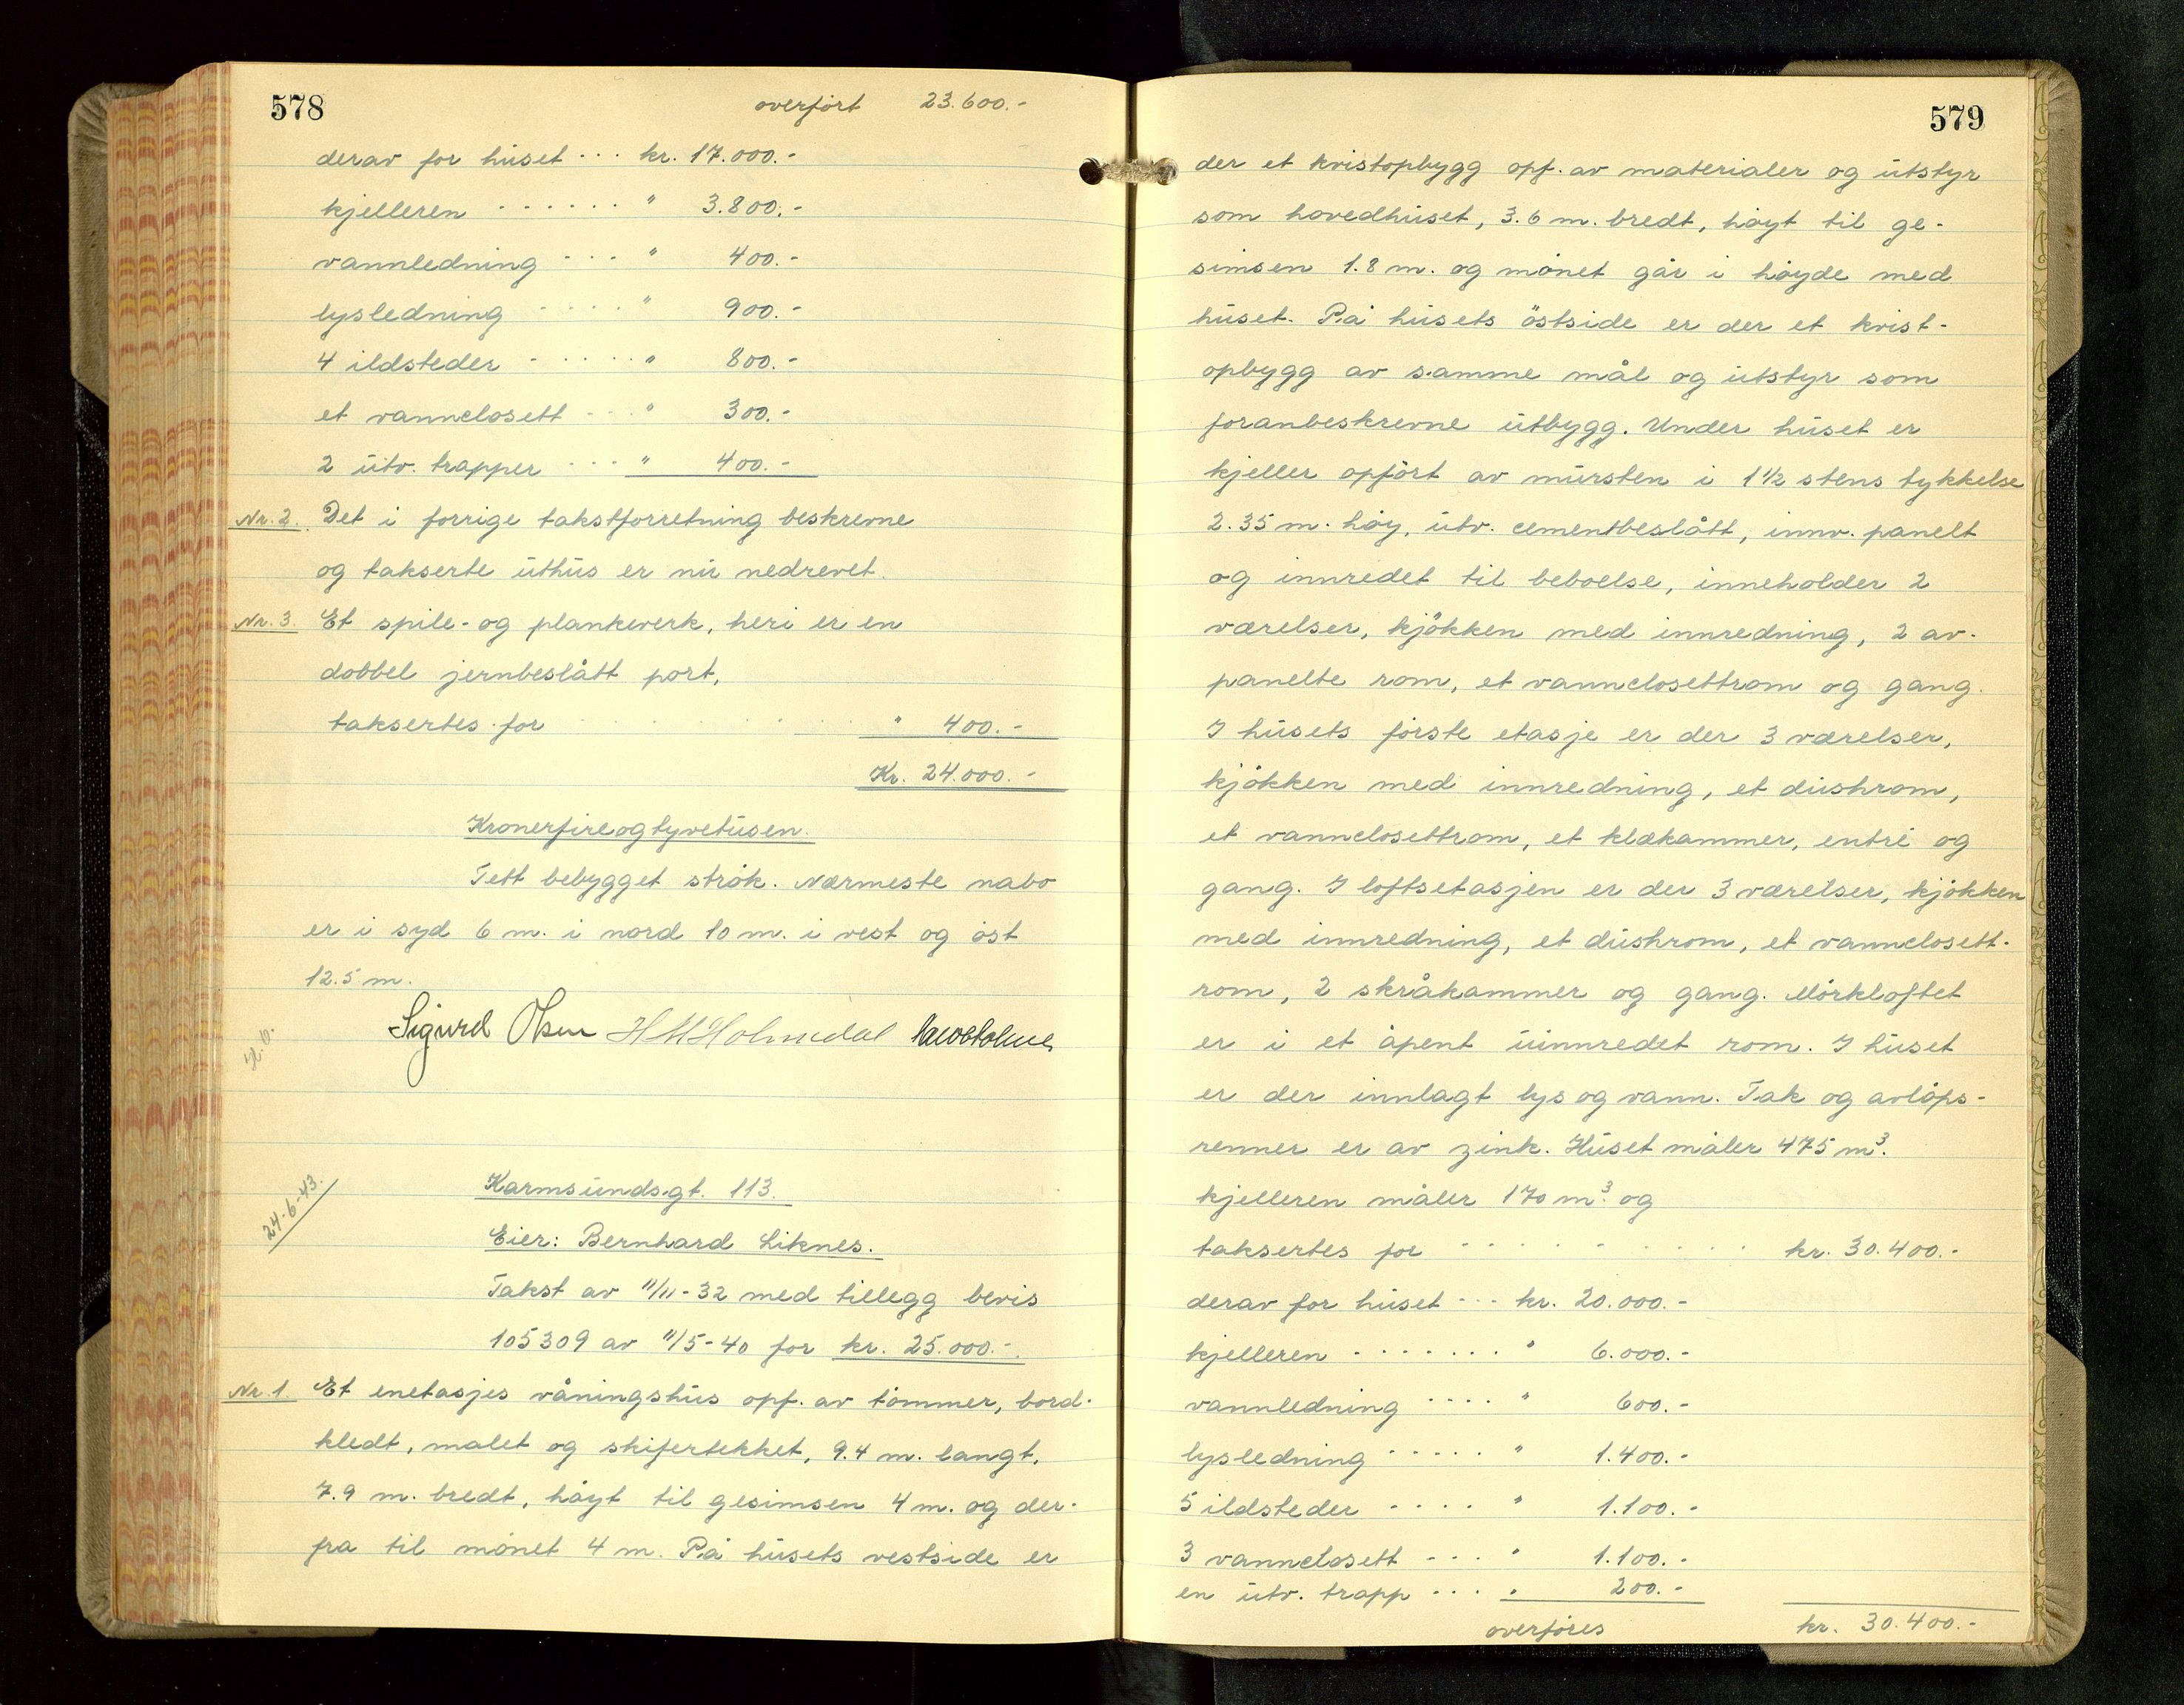 578
overført 23.600.-
derav for huset - - - kr. 17.000.-
kjelleren - - - - - - " 3.800.-
vannledning - - - " 400.-
lysledning - - - - " 900.-
4 ildsteder - - - - - " 800.-
et vannclosett - - - " 300.-
2 utv. trapper - - - " 400.-
Nr. 2. Det i forrige takstforretning beskrevne
og takserte uthus er nu nedrevet.
Nr. 3. Et spile- og plankeverk, heri er en
dobbel jernbeslått port,
taksertes for " 400.-
Kr. 24.000.-
Kronerfireogtyvetusen.
Tett bebygget strøk. Nærmeste nabo
er i syd 6 m. i nord 10 m. i vest og øst
12.5 m.
Sigurd Olsen H M Holmedal
24-6-43.
Karmsundsgt. 113.
Eier: Bernhard Liknes.
Takst av 11/11-32 med tillegg bevis
105309 av 11/5-40 for kr. 25.000.-
Nr. 1. Et enetasjes våningshus opf. av tømmer, bord-
kledt, malet og skifertekket, 9.4 m. langt,
7.9 m. bredt, høyt til gesimsen 4 m. og der-
fra til mønet 4 m. På husets vestside er
579
der et kvistopbygg opf. av materialer og utstyr
som hovedhuset, 3.6 m. bredt, høyt til ge-
simsen 1.8 m. og mønet går i høyde med
huset. På husets østside er der et kvist-
opbygg av samme mål og utstyr som
foranbeskrevne utbygg. Under huset er
kjeller opført av mursten i 1 1/2 stens tykkelse
2.35 m. høy, utv. cementbeslått, innv. panelt
og innredet til beboelse, inneholder 2
værelser, kjøkken med innredning, 2 av-
panelte rom, et vannclosettrom og gang.
I husets første etasje er der 3 værelser,
kjøkken med innredning, et dushrom,
et vannclosettrom, et klækammer, entré og
gang. I loftsetasjen er der 3 værelser, kjøkken
med innredning, et dushrom, et vannclosett-
rom, 2 skråkammer og gang. Mørkloftet
er i et åpent uinnredet rom. I huset
er der innlagt lys og vann. Tak og avløps-
renner er av zink. Huset måler 475 m³.
kjelleren måler 170 m³. og
taksertes for - - - - - - kr. 30.400.-
derav for huset - - - kr. 20.000.-
kjelleren - - - - - - - " 6.000.-
vannledning - - - - " 600.-
lysledning - - - - - " 1.400.-
5 ildsteder - - - - " 1.100.-
3 vannclosett - - - " 1.100.-
en utv. trapp - - - " 200.-
overføres kr. 30.400.-